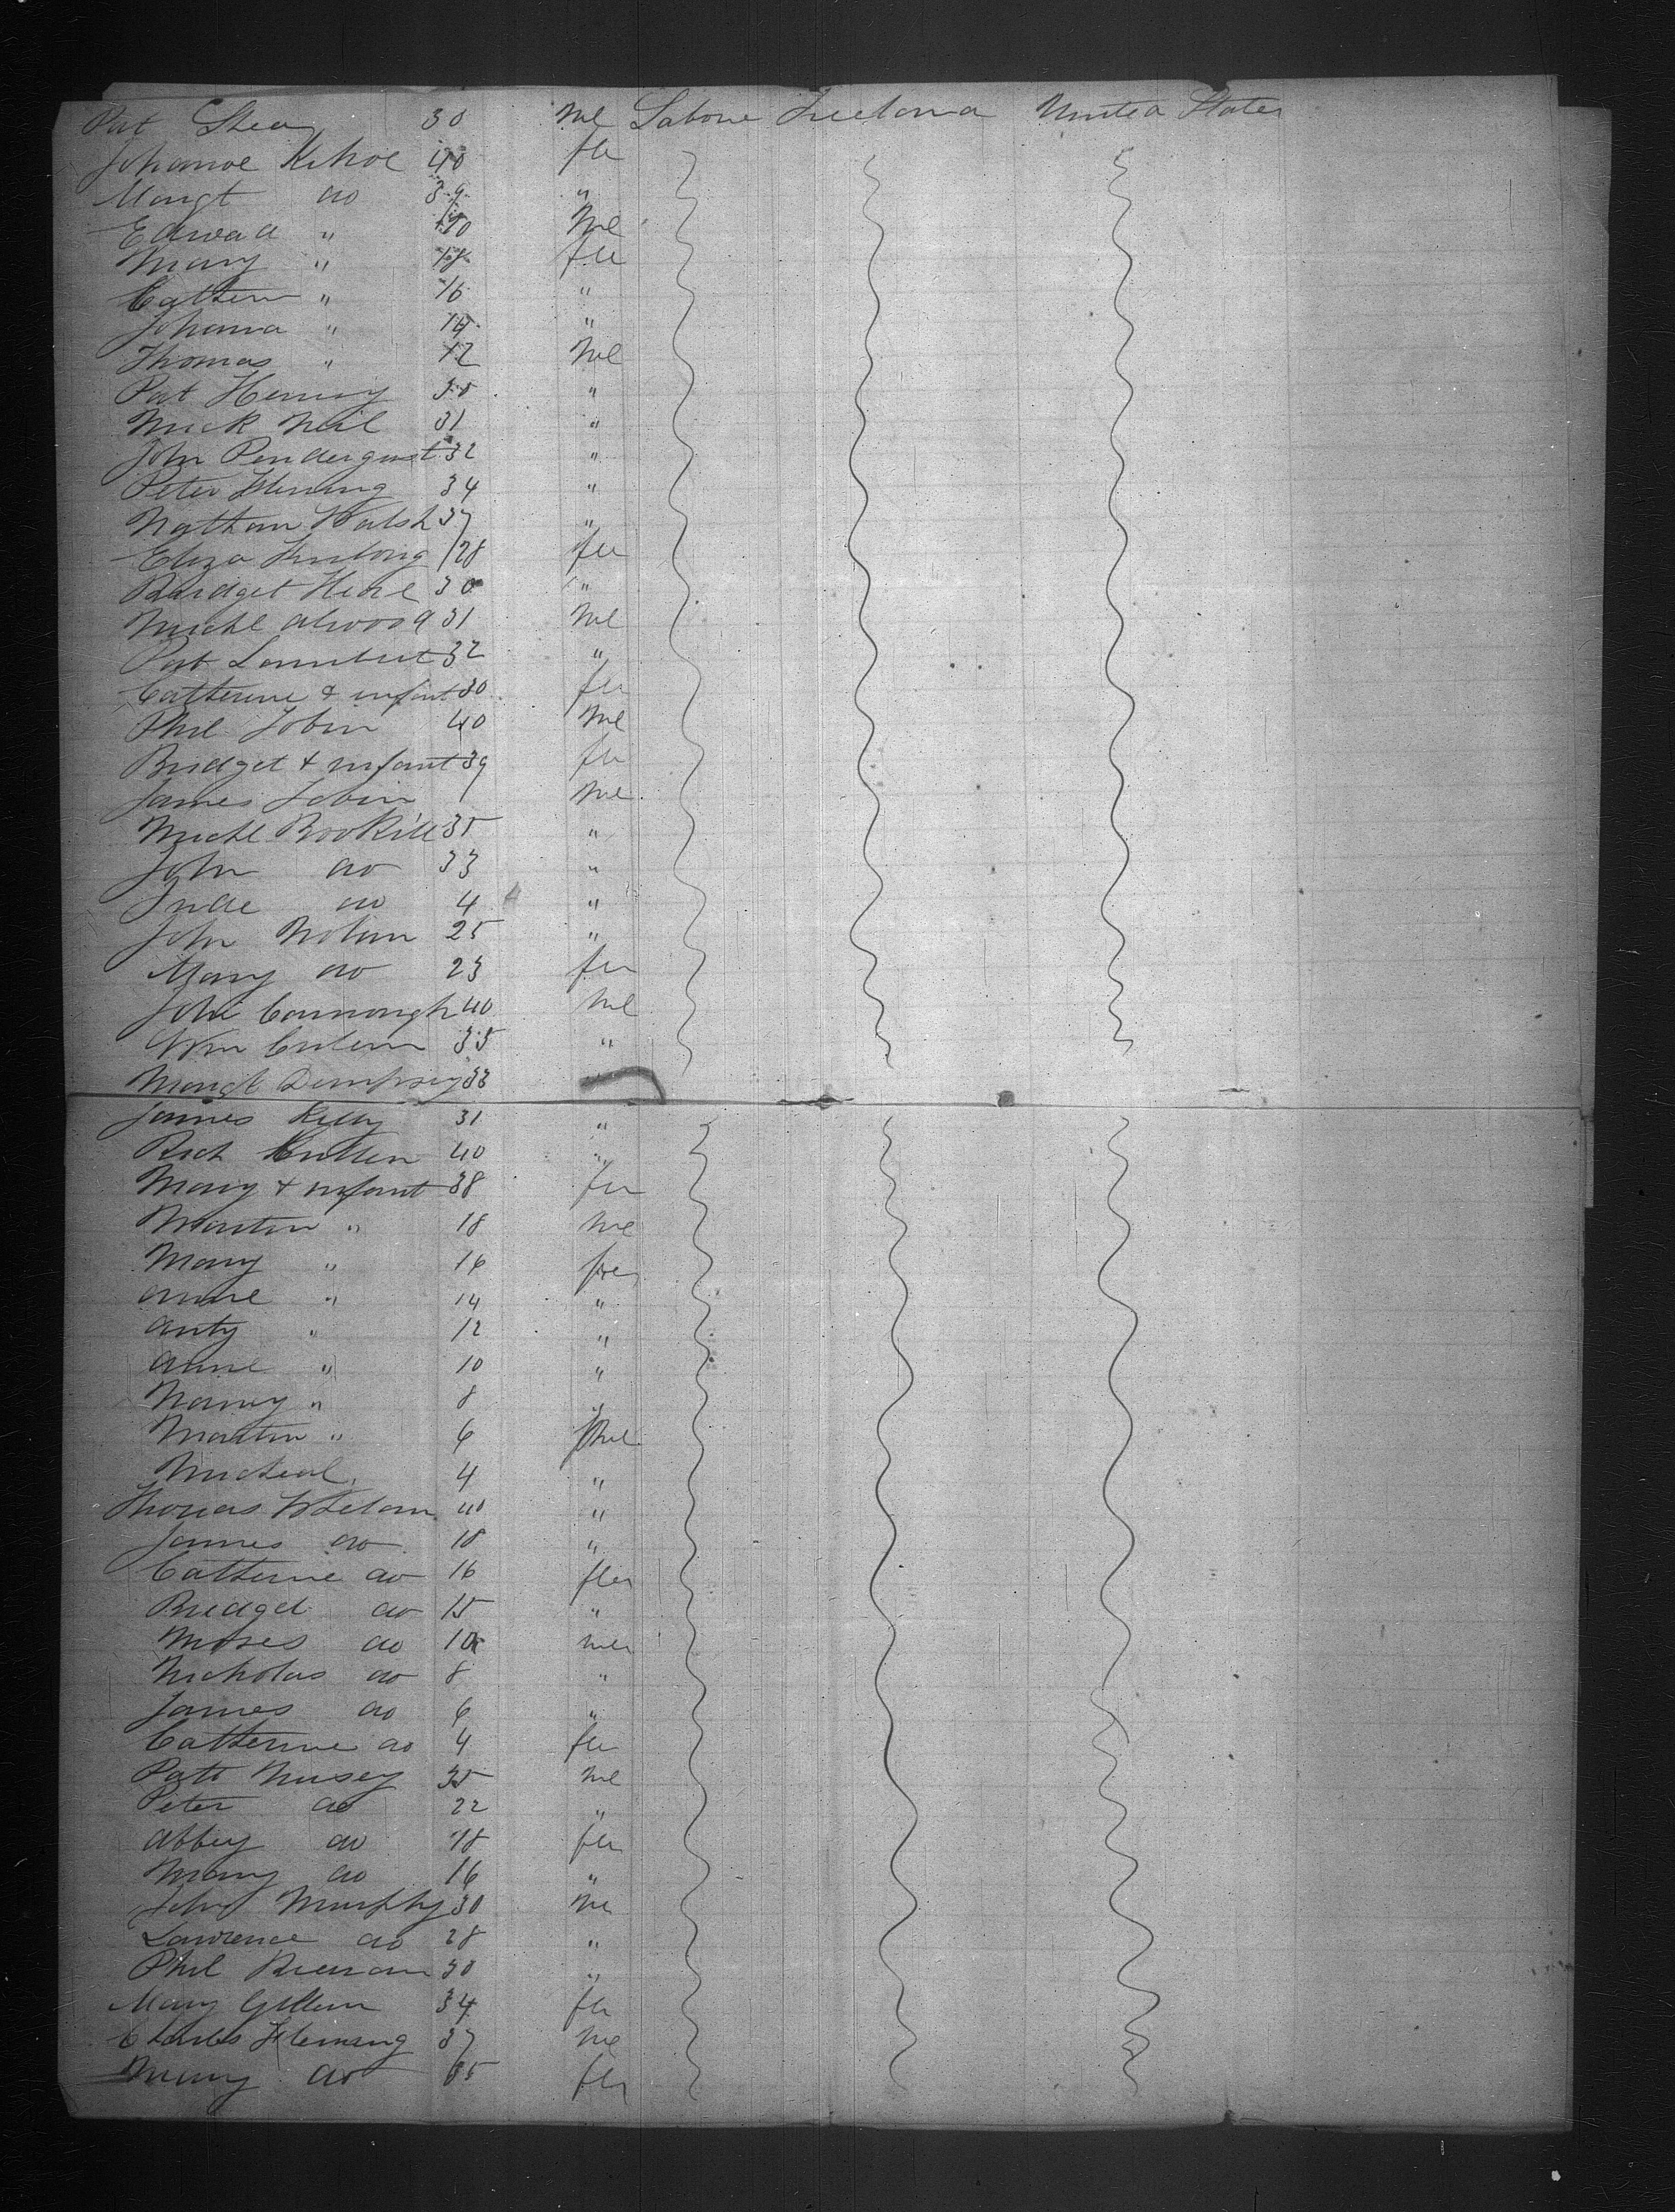 Pat Shea 30 Ml Labore Ireland United States
Johanoe Kehoe 40 fe
Margt do 39 "
Edward " 10 Ml
Mary " 18 fe
Cathern " 16 "
Johana " 14 "
Thomas " 12 Ml
Pat Henny 30 "
Mick Neil 31 "
John Pendergast 32 "
Peter Fleming 34 "
Nathan Walsh 37 "
Eliza Furlong 28 fe
Bridget 30 "
Michl Atwood 31 Ml
Pat Lambert 32 "
Catterine & infant 30 fe
Phil Tobin 40 Ml
Bridget & infant 39 fe
James Tobin 9 Ml
Michl 35 "
John do 33 "
do 4 "
John Nolan 25 "
Mary do 23 fe
John Cannongh 40 Ml
Wm 35 "
Margt Dempsey 33 "
James Kelly 31 "
Rich Cullen 40 "
Mary & infant 38 fe
Martin " 18 Ml
Mary " 16 fe
Anne " 14 "
Anty " 12 "
Anne " 10 "
Nancy " 8 "
Martin " 6 Ml
Micheal 4 "
Thomas Whelan 40 "
James do 18 "
Catterine do 16 fe
Bridget do 15 "
Moses do 10 Ml
Nicholas do 8 "
James do 6 "
Catterine do 4 fe
Patt 35 Ml
Peter do 22 "
Abbey do 18 fe
Mary do 16 "
John Murphy 30 Ml
Lawrence do 28 "
Phil 30 "
Mary 34 fe
Charles Fleming 37 Ml
Mary do 35 fe